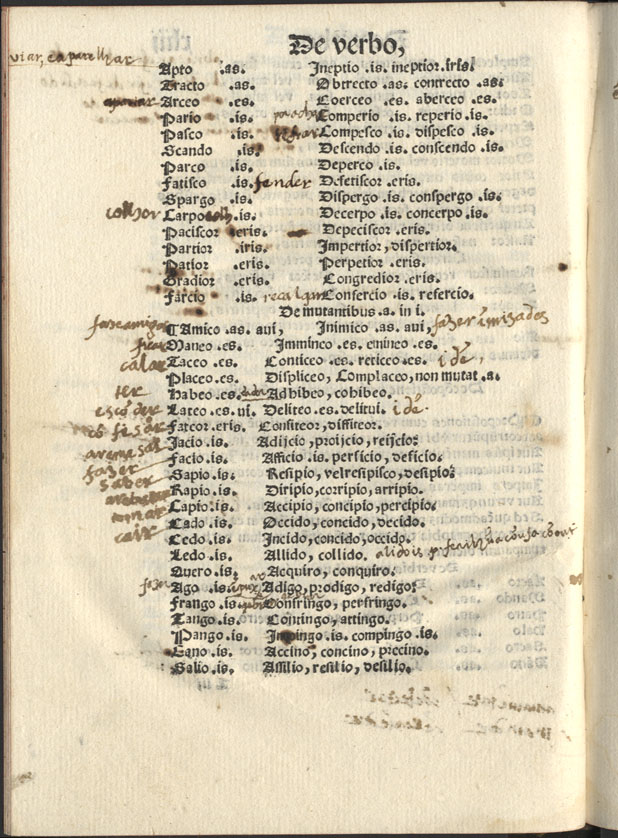 De verbo,
viar, e aparelhar
Apto .as. Ineptio .is. ineptior .iris.
Tracto .as. Obtrecto .as. contrecto .as.
Arceo .es. Coerceo .es. aberceo .es.
Pario .is. Comperio .is. reperio .is.
Pasco .is. Compesco .is. dispesco .is.
Scando .is. Descendo .is. conscendo .is.
Parco .is. Deperco .is.
Fatisco .is. fender Defetiscor .eris.
Spargo .is. Dispergo .is. conspergo .is.
colhor Carpo .is. Decerpo .is. concerpo .is.
Paciscor .eris. Depeciscor .eris.
Partior .iris. Impertior, dispertior.
Patior .eris. Perpetior .eris.
Gradior .eris. Congredior .eris.
Farcio .is. Confercio .is. refercio.
De mutantibus .a. in i.
¶Amico .as. aui, Inimico .as. aui, fazer imizados
Maneo .es. Immineo .es. emineo .es.
calar Taceo .es. Conticeo .es. reticeo .es. idē,
Placeo .es. Displiceo, Complaceo, non mutat .a.
ter Habeo .es. Adhibeo, cohibeo.
escōder Lateo .es. ui. Deliteo .es. delitui. idē.
cōfesar Fateor .eris. Confiteor, diffiteor.
aremesar Jacio .is. Adijcio, proijcio, reijscio:
fazer Facio .is. Afficio .is. perficio, deficio.
saber Sapio .is. Resipio, vel resipisco, desipio:
Rapio .is. Diripio, corripio, arripio.
tomar Capio .is. Accipio, concipio, percipio.
cair Cado .is. Occido, concido, decido.
Cedo .is. Incido, concido, occido.
Ledo .is. Allido, collido.
Quero .is. Acquiro, conquiro.
Ago .is. Adigo, prodigo, redigo:
Frango .is. Confringo, perfringo.
Tango .is. Contingo, attingo.
Pango .is. Impingo .is. compingo .is.
Cano .is. Accino, concino, precino.
Salio .is. Assilio, resilio, desilio.